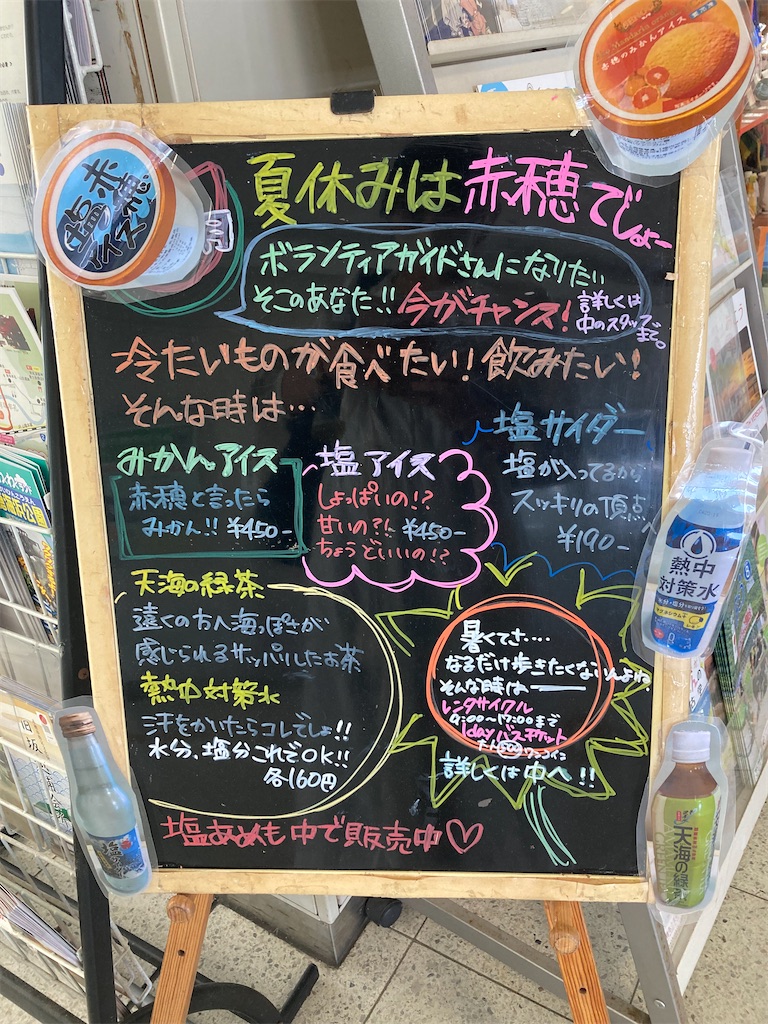 夏休みは赤穂でしょー
ボランティアガイドさんになりたい
そこのあなた!! 今がチャンス!
詳しくは
中のスタッフまで。
冷たいものが食べたい! 飲みたい!
そんな時は…
みかんアイス
赤穂と言ったら
みかん!! ¥450-
塩アイス
しょっぱいの!?
甘いの?! ¥450-
ちょうどいいの!?
塩サイダー
塩が入ってるから
スッキリの頂点へ
¥190-
天海の緑茶
遠くのお〜海っぽさが
感じられるサッパリしたお茶
熱中対策水
汗をかいたらコレでしょ!!
水分、塩分これでOK!!
各160円
暑くてさ....
なるだけ歩きたくないんよね
そんな時は
レンタサイクル
9:00〜17:00まで
1dayバスチケット
500 ワンコイン
詳しくは中へ!!
塩あめも中で販売中♡
赤穂
塩
アイス
赤穂のみかんアイス
熱中
対策水
天海の緑茶